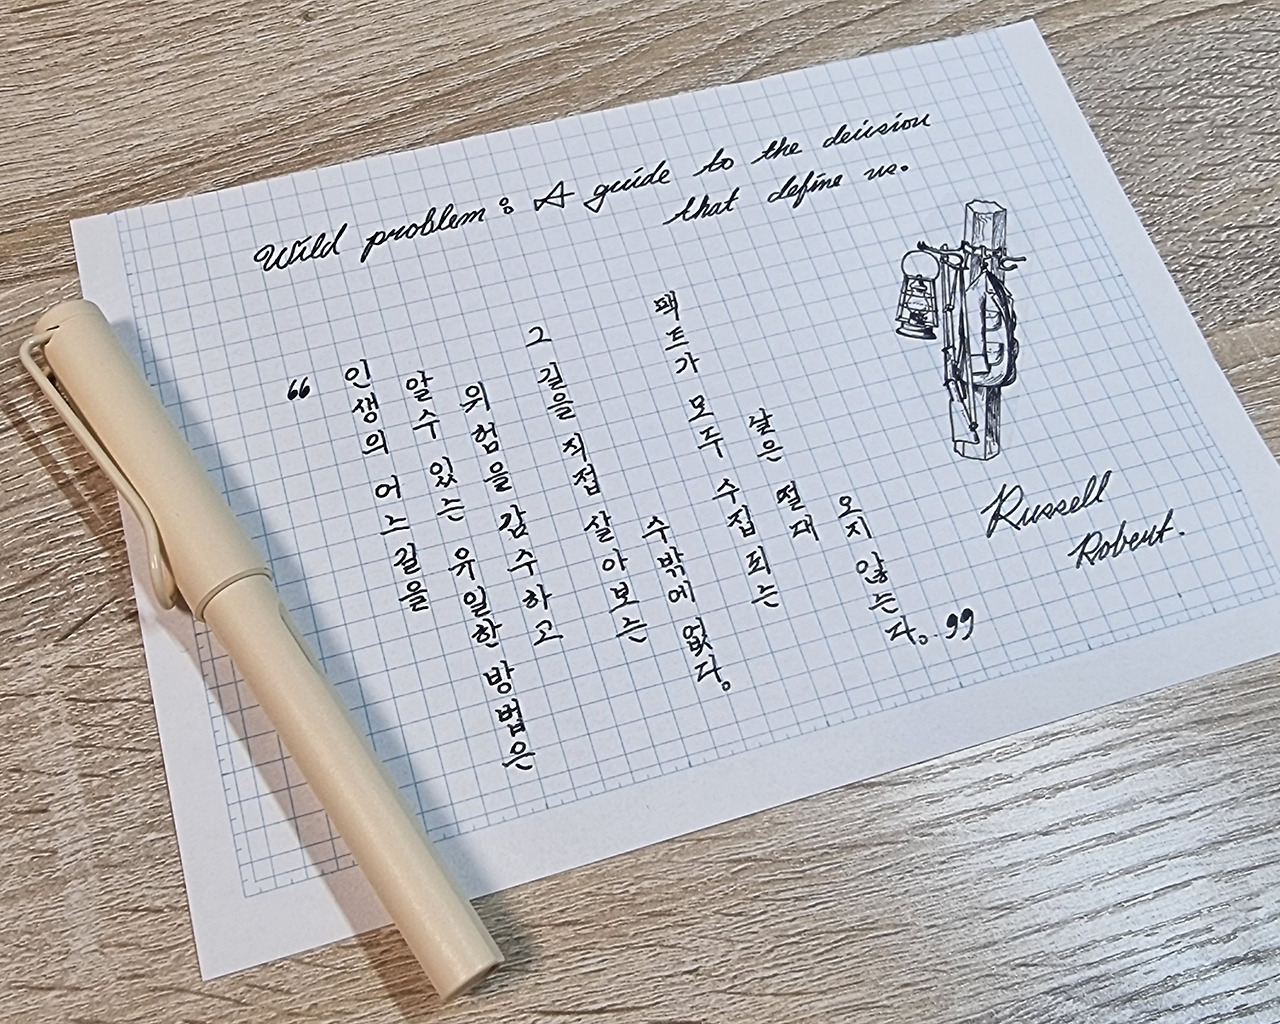 Wild problem : A guide to the decision
that define us.
“ 인생의 어느 길을
알 수 있는 유일한 방법은
위험을 감수하고
그 길을 직접 살아보는
수밖에 없다.
팩트가 모두 수집되는
날은 절대
오지 않는다. ”
Russell
Robert.